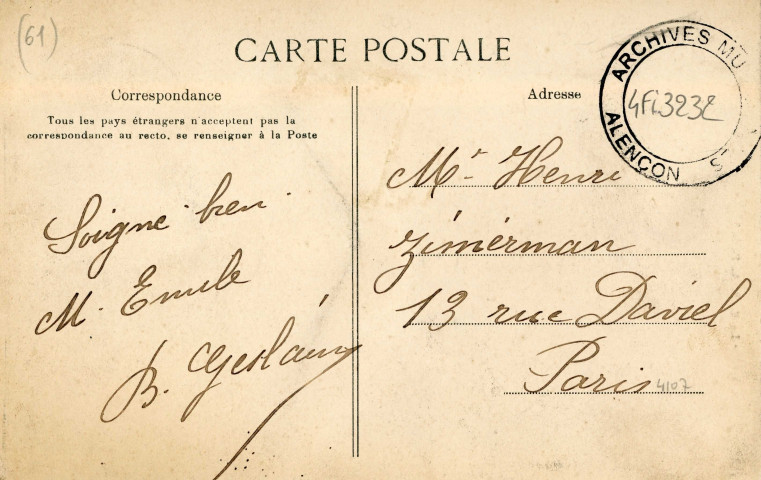 (61)
CARTE POSTALE
ARCHIVES MU
4Fi3232
ALENÇON
Correspondance
Tous les pays étrangers n'acceptent pas la
correspondance au recto, se renseigner à la Poste
Soigne bien
M. Emile
B. Geslain
Adresse
Mr Henri
Zimerman
13 rue Daviel
Paris
4107